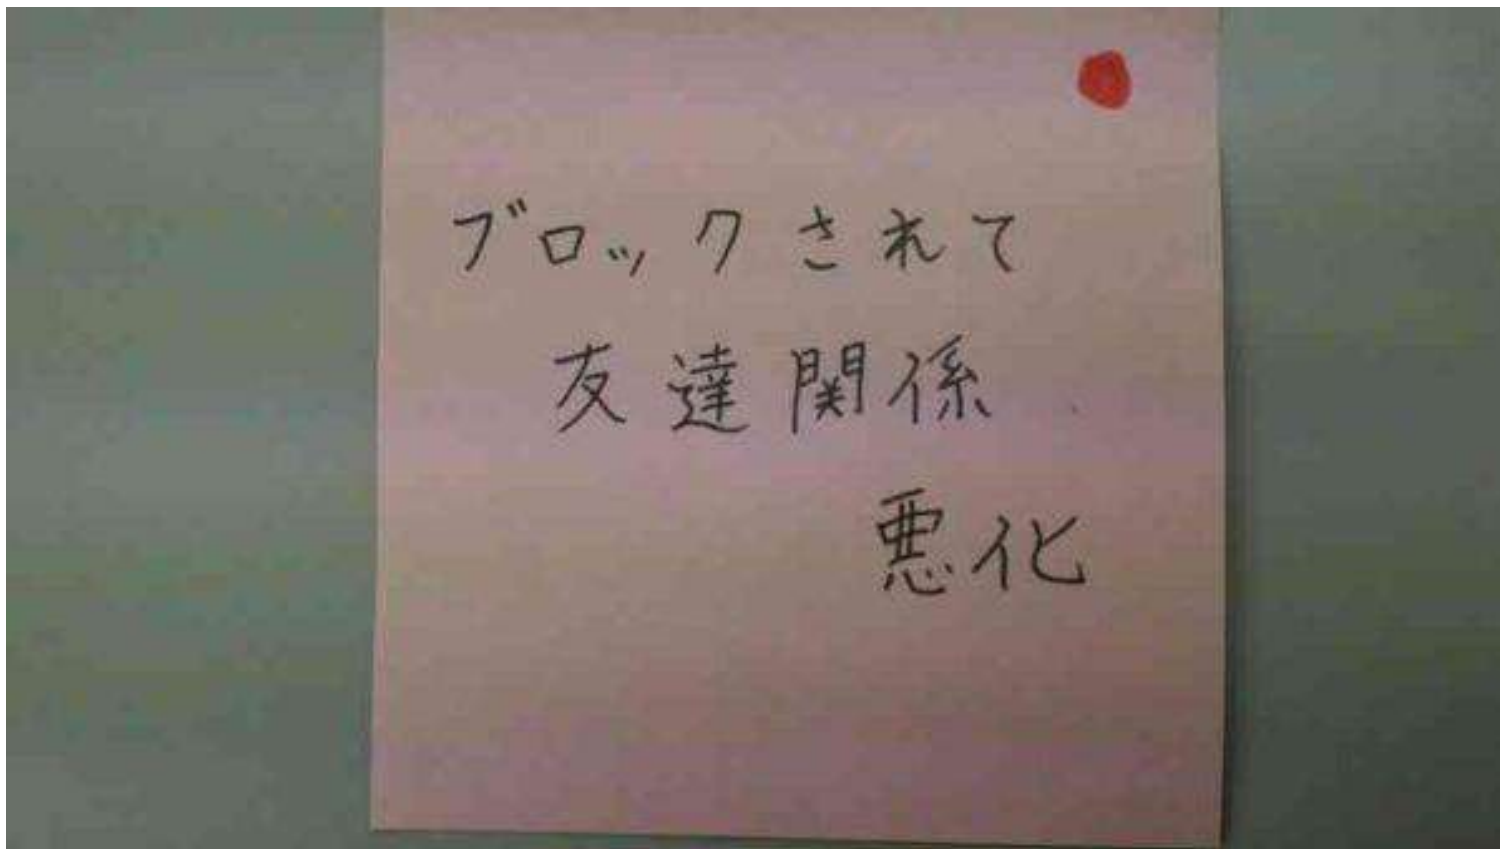 ブロックされて
友達関係
悪化